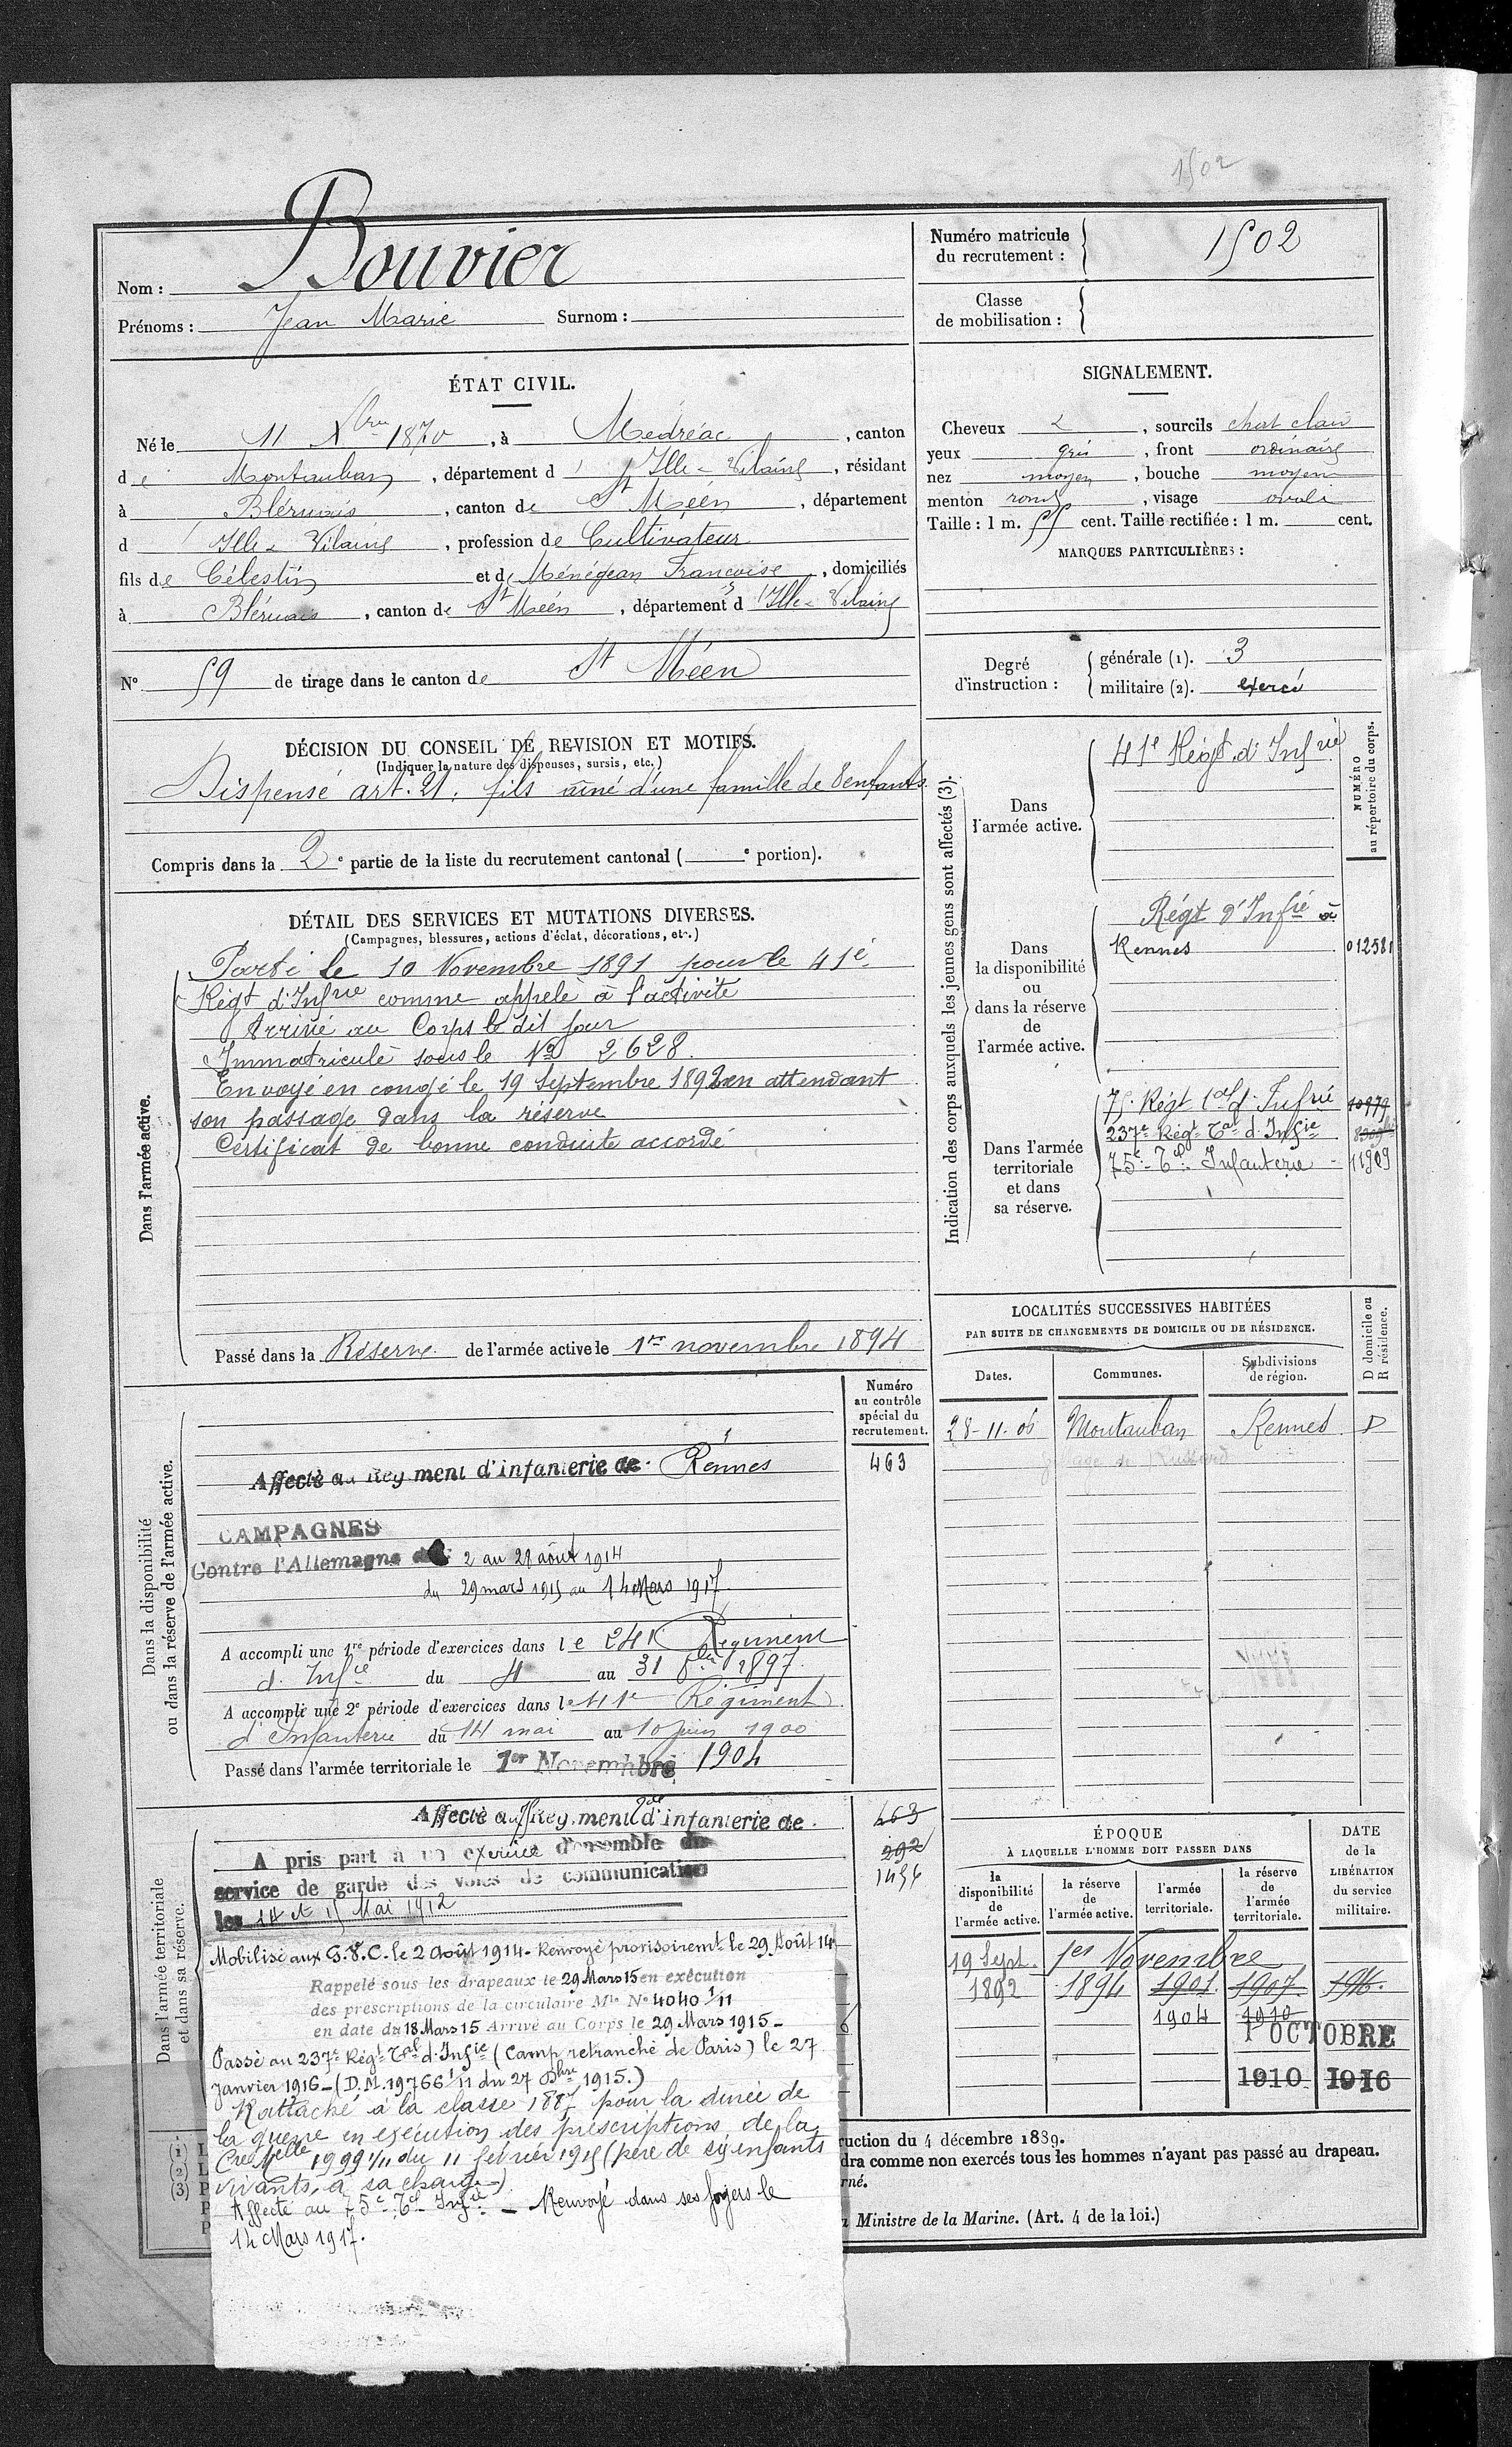 1502
Nom : Bouvier
Prénoms : Jean Marie Surnom :
Numéro matricule
du recrutement : 1502
Classe
de mobilisation :
ÉTAT CIVIL.
Né le 11 Xbre 1870, à Médréac, canton
de Montauban, département d'Ille-Vilaine, résidant
à Bléruais, canton de St Méen, département
d'Ille-Vilaine, profession de Cultivateur
fils de Célestin et de Ménégean Francoise, domiciliés
à Bléruais, canton de St Méen, département d'Ille-Vilaine
N° 59 de tirage dans le canton de St Méen
SIGNALEMENT.
Cheveux , sourcils chat clair
yeux gris, front ordinaire
nez moyen, bouche moyen
menton rond, visage ovale
Taille : 1 m. 55 cent. Taille rectifiée : 1 m. cent.
MARQUES PARTICULIÈRES :
Degré
d'instruction :
générale (1). 3
militaire (2). exercé
DÉCISION DU CONSEIL DE REVISION ET MOTIFS.
(Indiquer la nature des dispenses, sursis, etc.)
Dispensé art. 21. fils ainé d'une famille de 8 enfants
Compris dans la 2e partie de la liste du recrutement cantonal ( e portion).
DÉTAIL DES SERVICES ET MUTATIONS DIVERSES.
(Campagnes, blessures, actions d'éclat, décorations, etc.)
Dans l'armée active.
Parti le 10 Novembre 1891 pour le 41e
Régt d'Infrie comme appelé à l'activité
Arrivé au Corps le dit jour
Immatriculé sous le No 2628.
Envoyé en congé le 19 Septembre 1892 en attendant
son passage dans la réserve
Certificat de bonne conduite accordé
Passé dans la Réserve de l'armée active le 1er novembre 1894
Indication des corps auxquels les jeunes gens sont affectés (3).
NUMÉRO
au répertoire du corps.
Dans
l'armée active.
41e Régt d'Infrie
Dans
la disponibilité
ou
dans la réserve
de
l'armée active.
Régt d'Infie à
Rennes 012581
Dans l'armée
territoriale
et dans
sa réserve.
75 Régt tal d'Infrie 10979
237e Régt Tal d'Infie
75e Tal Infanterie 11909
LOCALITÉS SUCCESSIVES HABITÉES
PAR SUITE DE CHANGEMENTS DE DOMICILE OU DE RÉSIDENCE.
Dates. Communes. Subdivisions
de région.
D domicile ou
R résidence.
28-11-06 Montauban Rennes D
Dans la disponibilité
ou dans la réserve de l'armée active.
Numéro
au contrôle
spécial du
recrutement.
463
Affecté au Régiment d'infanterie de Rennes
CAMPAGNES
Contre l'Allemagne du 2 au 29 août 1914
du 29 mars 1915 au 14 Mars 1917
A accompli une 1re période d'exercices dans le 241e Régiment
d'Infie du 4 au 31 8bre 1897.
A accompli une 2e période d'exercices dans le 41e Régiment
d'Infanterie du 14 mai au 10 juin 1900
Passé dans l'armée territoriale le 1er Novembre 1904
Dans l'armée territoriale
et dans sa réserve.
Affecté au 75 Régiment tal d'infanterie de
463
292
1436
A pris part à un exercice d'ensemble du
service de garde des voies de communication
les 14 et 15 Mai 1912
Mobilisé aux G.V.C. le 2 Août 1914 - Renvoyé provisoiremt le 29 Août 14
Rappelé sous les drapeaux le 29 Mars 15 en exécution
des prescriptions de la circulaire Mlle N° 4040 1/11
en date du 18 Mars 15 Arrivé au Corps le 29 Mars 1915 -
Passé au 237e Régt Tal d'Infie (Camp retranché de Paris) le 27
Janvier 1916 - (D.M. 19766 1/11 du 27 Dbre 1915.)
Rattaché à la classe 1887 pour la durée de
la guerre en exécution des prescriptions de la
Cre Melle 1999 1/11 du 11 février 1915 (père de six enfants
vivants, à sa charge)
Affecté au 75e Tal Infie - Renvoyé dans ses foyers le
14 Mars 1917.
ÉPOQUE
À LAQUELLE L'HOMME DOIT PASSER DANS
la
disponibilité
de
l'armée active.
la réserve
de
l'armée active.
l'armée
territoriale.
la réserve
de
l'armée
territoriale.
DATE
de la
LIBÉRATION
du service
militaire.
19 Sept. 1er Novembre
1892 1894 1901 1907 1916.
1904 1910
1 OCTOBRE
1910 1916
(1)
(2)
(3)
ruction du 4 décembre 1889.
dra comme non exercés tous les hommes n'ayant pas passé au drapeau.
rné.
Ministre de la Marine. (Art. 4 de la loi.)